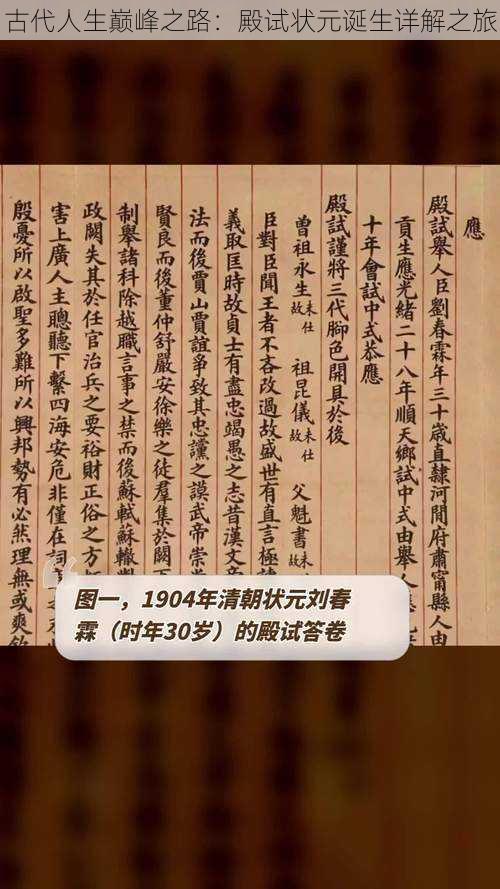 古代人生巅峰之路：殿试状元诞生详解之旅
應
殿試舉人臣劉春霖年三十歲直隸河間府肅甯縣人由
貢生應光緒二十八年順天鄉試中式由舉人應
十年會試中式恭應
殿試謹將三代腳色開具於後
曾祖永生未仕故 祖昆儀未仕故 父魁書未故
臣對臣聞王者不吝改過故盛世有直言極
義取匡時故貞士有盡忠竭愚之志昔漢文帝
法而後賈山賈誼爭致其忠讜之謨武帝崇
賢良而後董仲舒嚴安徐樂之徒羣集於闕下
制舉諸科除越職言事之禁而後蘇軾蘇轍
政闕失其於任官治兵之要裕財正俗之方
害上廣人主聰聽下繫四海安危非僅在詞
殷憂所以啟聖多難所以興邦勢有必然理無或爽
图一，1904年清朝状元刘春
霖（时年30岁）的殿试答卷